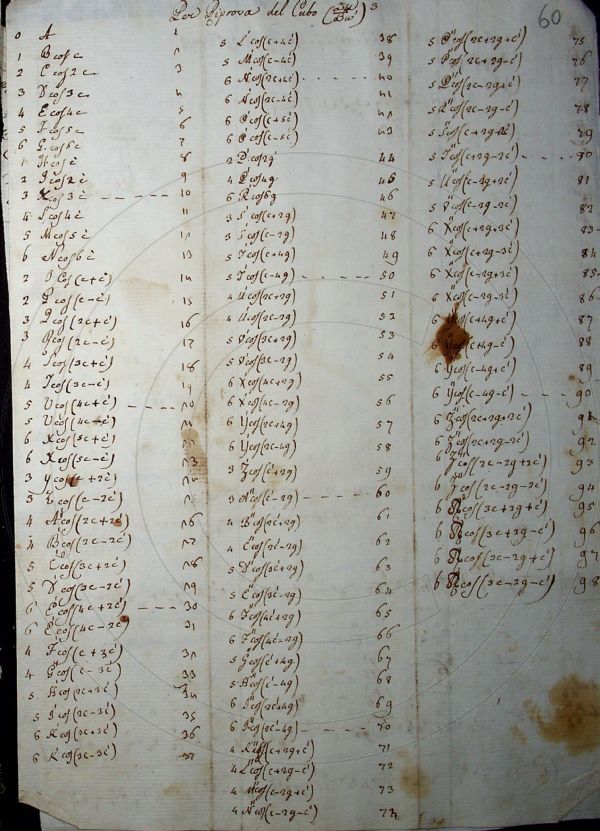 Per Riprova del Cubo 3
60
0 A 1
1 B cos c 2
2 C cos 2c 3
3 D cos 3c 4
4 E cos 4c 5
5 F cos 5c 6
6 G cos 6c 7
1 H cos ć 8
2 I cos 2ć 9
3 K cos 3ć 10
4 L cos 4ć 11
5 M cos 5ć 12
6 N cos 6ć 13
2 cos(c+ć) 14
2 P cos(c-ć) 15
3 Q cos(2c+ć) 16
3 R cos(2c-ć) 17
4 S cos(3c+ć) 18
4 T cos(3c-ć) 19
5 U cos(4c+ć) 20
5 V cos(4c-ć) 21
6 X cos(5c+ć) 22
6 X cos(5c-ć) 23
3 Y cos(c+2ć)
3 cos(c-2ć) 25
4 A cos(2c+2ć) 26
4 B cos(2c-2ć) 27
5 C cos(3c+2ć) 28
5 D cos(3c-2ć) 29
6 E cos(4c+2ć) 30
6 E cos(4c-2ć) 31
4 F cos(c+3ć) 32
4 G cos(c-3ć) 33
5 H cos(2c+3ć) 34
5 I cos(2c-3ć) 35
6 K cos(3c+3ć) 36
6 K cos(3c-3ć) 37
5 L cos(c+4ć) 38
5 M cos(c-4ć) 39
6 N cos(2c+4ć) 40
6 N cos(2c-4ć) 41
6 O cos(c+5ć) 42
6 O cos(c-5ć) 43
2 P cos 2g 44
4 Q cos 4g 45
6 R cos 6g 46
3 S cos(c+2g) 47
3 S cos(c-2g) 48
5 T cos(c+4g) 49
5 T cos(c-4g) 50
4 U cos(2c+2g) 51
4 U cos(2c-2g) 52
5 V cos(3c+2g) 53
5 V cos(3c-2g) 54
6 X cos(4c+2g) 55
6 X cos(4c-2g) 56
6 Y cos(2c+4g) 57
6 Y cos(2c-4g) 58
3 Z cos(ć+2g) 59
3 A cos(ć-2g) 60
4 B cos(2ć+2g) 61
4 C cos(2ć-2g) 62
5 D cos(3ć+2g) 63
5 E cos(3ć-2g) 64
6 F cos(4ć+2g) 65
6 F cos(4ć-2g) 66
5 G cos(ć+4g) 67
5 H cos(ć-4g) 68
6 I cos(2ć+4g) 69
6 K cos(2ć-4g) 70
4 K cos(c+2g+ć) 71
4 L cos(c+2g-ć) 72
4 M cos(c-2g+ć) 73
4 N cos(c-2g-ć) 74
5 O cos(2c+2g+ć) 75
5 P cos(2c+2g-ć) 76
5 Q cos(2c-2g+ć) 77
5 R cos(2c-2g-ć) 78
5 S cos(c+2g+2ć) 79
5 T cos(c+2g-2ć) 80
5 U cos(c-2g+2ć) 81
5 V cos(c-2g-2ć) 82
6 X cos(c+2g+3ć) 83
6 X cos(c+2g-3ć) 84
6 X cos(c-2g+3ć) 85
6 X cos(c-2g-3ć) 86
6 Y cos(c+4g+ć) 87
6 Y cos(c+4g-ć) 88
6 Y cos(c-4g+ć) 89
6 Y cos(c-4g-ć) 90
6 Z cos(2c+2g+2ć) 91
6 Z cos(2c+2g-2ć) 92
6 Z cos(2c-2g+2ć) 93
6 Z cos(2c-2g-2ć) 94
6 cos(3c+2g+ć) 95
6 cos(3c+2g-ć) 96
6 cos(3c-2g+ć) 97
6 cos(3c-2g-ć) 98